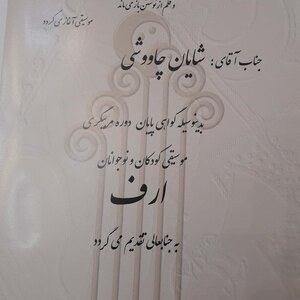 و قلم از نوشتن باز می ماند
موسیقی آغاز می گردد
جناب آقای : شایان چاووشی
بدینوسیله گواهی پایان دوره مربیگری
موسیقی کودکان و نوجوانان
ارف
به جنابعالی تقدیم می گردد